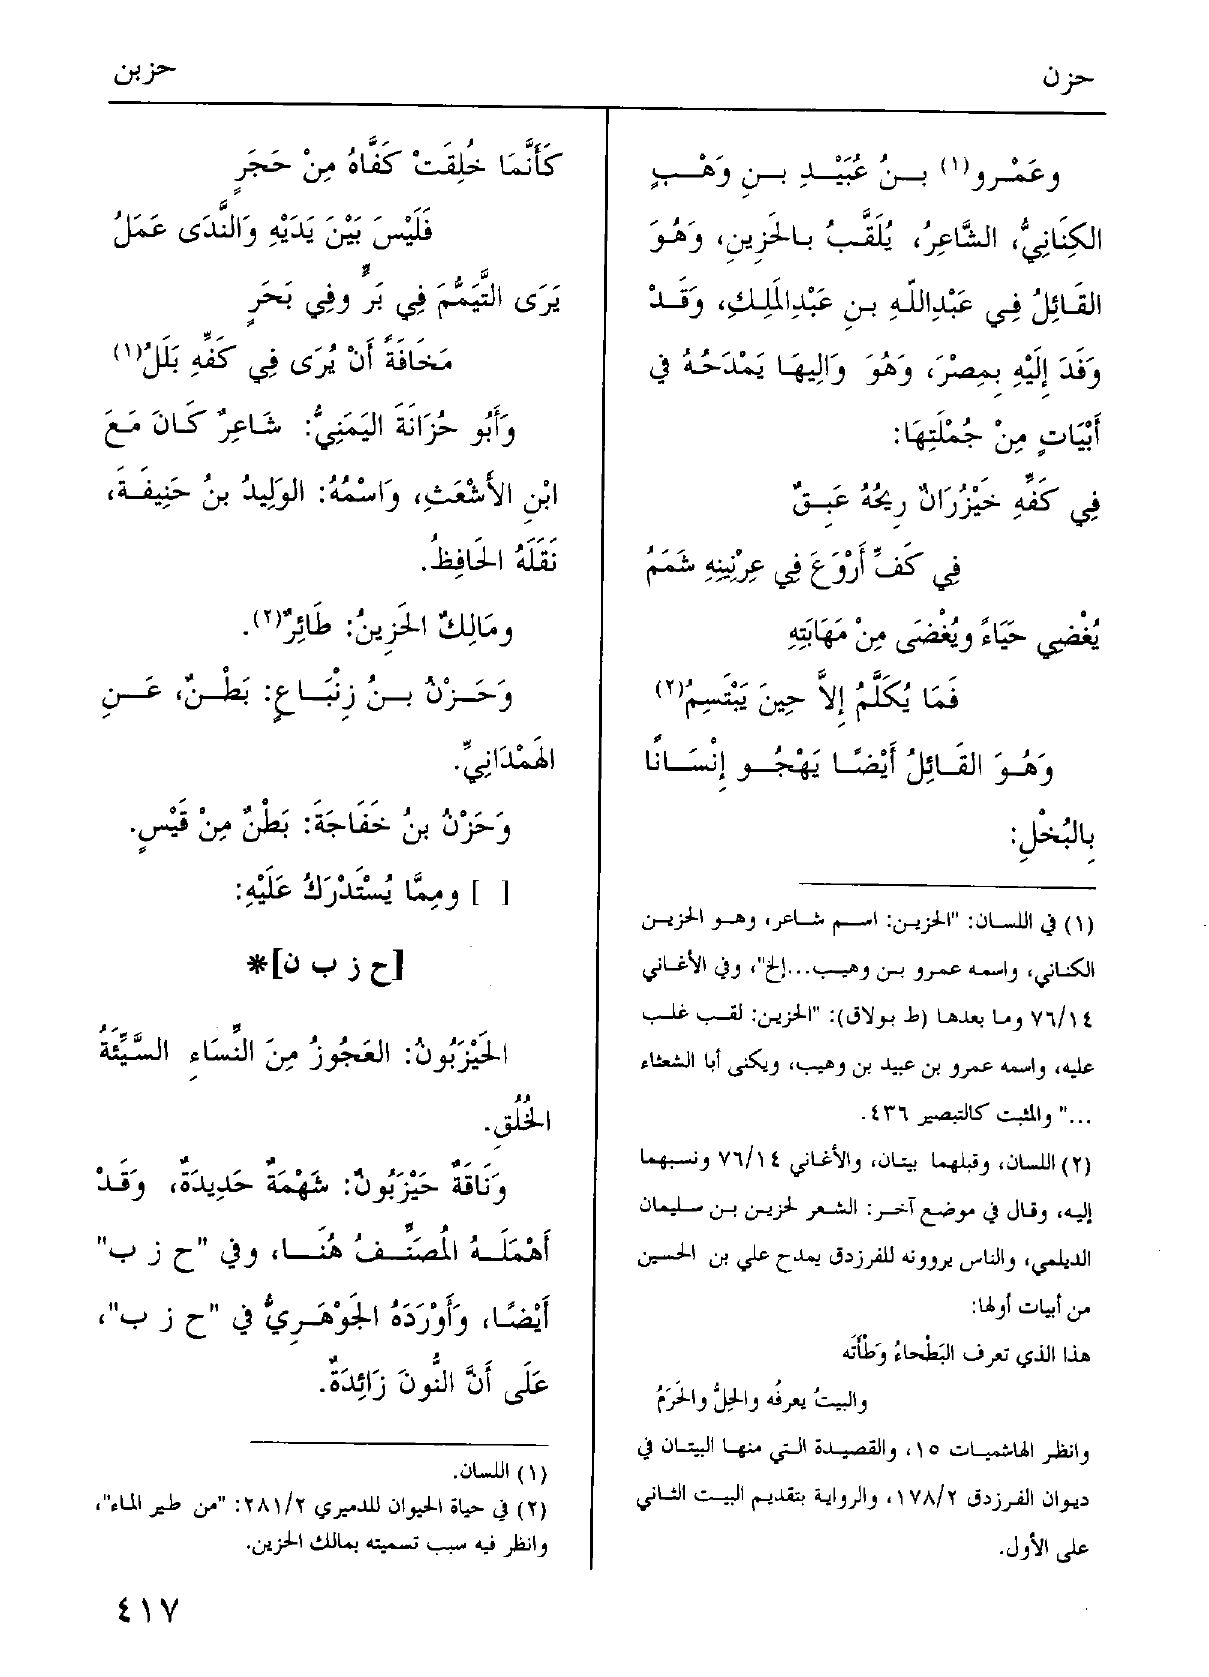 حزن
حزبن
وعَمْرو(١) بنُ عُبَيْدِ بنِ وَهْبٍ
الكِنَانِيُّ، الشَّاعِرُ، يُلَقَّبُ بالحَزِينِ، وَهُوَ
القَائِلُ فِي عَبْدِاللّهِ بنِ عَبْدِالمَلِكِ، وَقَدْ
وَفَدَ إِلَيْهِ بِمِصْرَ، وَهُوَ وَالِيهَا يَمْدَحُهُ في
أَبْيَاتٍ مِنْ جُمْلَتِهَا:
فِي كَفِّهِ خَيْزُرَانٌ رِيحُهُ عَبِقٌ
فِي كَفِّ أَرْوَعَ فِي عِرْنِينِهِ شَمَمُ
يُغْضِي حَيَاءً ويُغْضَى مِنْ مَهَابَتِهِ
فَمَا يُكَلَّمُ إِلاَّ حِينَ يَبْتَسِمُ(٢)
وَهُوَ القَائِلُ أَيْضًا يَهْجُو إِنْسَانًا
بِالبُخْلِ:
(١) في اللسان: "الحزين: اسم شاعر، وهو الحزين
الكناني، واسمه عمرو بن وهيب...إلخ"، وفي الأغاني
٧٦/١٤ وما بعدها (ط بولاق): "الحزين: لقب غلب
عليه، واسمه عمرو بن عبيد بن وهيب، ويكنى أبا الشعثاء
..." والمثبت كالتبصير ٤٣٦.
(٢) اللسان، وقبلهما بيتان، والأغاني ٧٦/١٤ ونسبهما
إليه، وقال في موضع آخر: الشعر لحزين بن سليمان
الديلمي، والناس يروونه للفرزدق يمدح علي بن الحسين
من أبيات أولها:
هذا الذي تعرف البَطْحاءُ وَطْأَتَه
والبيتُ يعرفُه والحِلُّ والحَرَمُ
وانظر الهاشميات ١٥، والقصيدة التي منها البيتان في
ديوان الفرزدق ١٧٨/٢، والرواية بتقديم البيت الثاني
على الأول.
كَأَنَّمَا خُلِقَتْ كَفَّاهُ مِنْ حَجَرٍ
فَلَيْسَ بَيْنَ يَدَيْهِ وَالنَّدَى عَمَلُ
يَرَى التَّيَمُّمَ فِي بَرٍّ وفِي بَحَرٍ
مَخَافَةً أَنْ يُرَى فِي كَفِّهِ بَلَلُ(١)
وَأَبُو حُزَانَةَ اليَمَنِيُّ: شَاعِرٌ كَانَ مَعَ
ابْنِ الأَشْعَثِ، وَاسْمُهُ: الوَلِيدُ بنُ حَنِيفَةَ،
نَقَلَهُ الحَافِظُ.
ومَالِكٌ الحَزِينُ: طَائِرٌ(٢).
وَحَزْنُ بنُ زِنْبَاعٍ: بَطْنٌ، عَنِ
الهَمْدَانِيِّ.
وَحَزْنُ بنُ خَفَاجَةَ: بَطْنٌ مِنْ قَيْسٍ.
[ ] ومِمَّا يُسْتَدْرَكُ عَلَيْهِ:
[ح ز ب ن]*
الحَيْزَبُونُ: العَجُوزُ مِنَ النِّسَاءِ السَّيِّئَةُ
الخُلُقِ.
وَنَاقَةٌ حَيْزَبُونٌ: شَهْمَةٌ حَدِيدَةٌ، وَقَدْ
أَهْمَلَهُ المُصَنِّفُ هُنَا، وفي "ح ز ب"
أَيْضًا، وَأَوْرَدَهُ الجَوْهَرِيُّ في "ح ز ب"،
عَلَى أَنَّ النُّونَ زَائِدَةٌ.
(١) اللسان.
(٢) في حياة الحيوان للدميري ٢٨١/٢: "من طير الماء"،
وانظر فيه سبب تسميته بمالك الحزين.
٤١٧